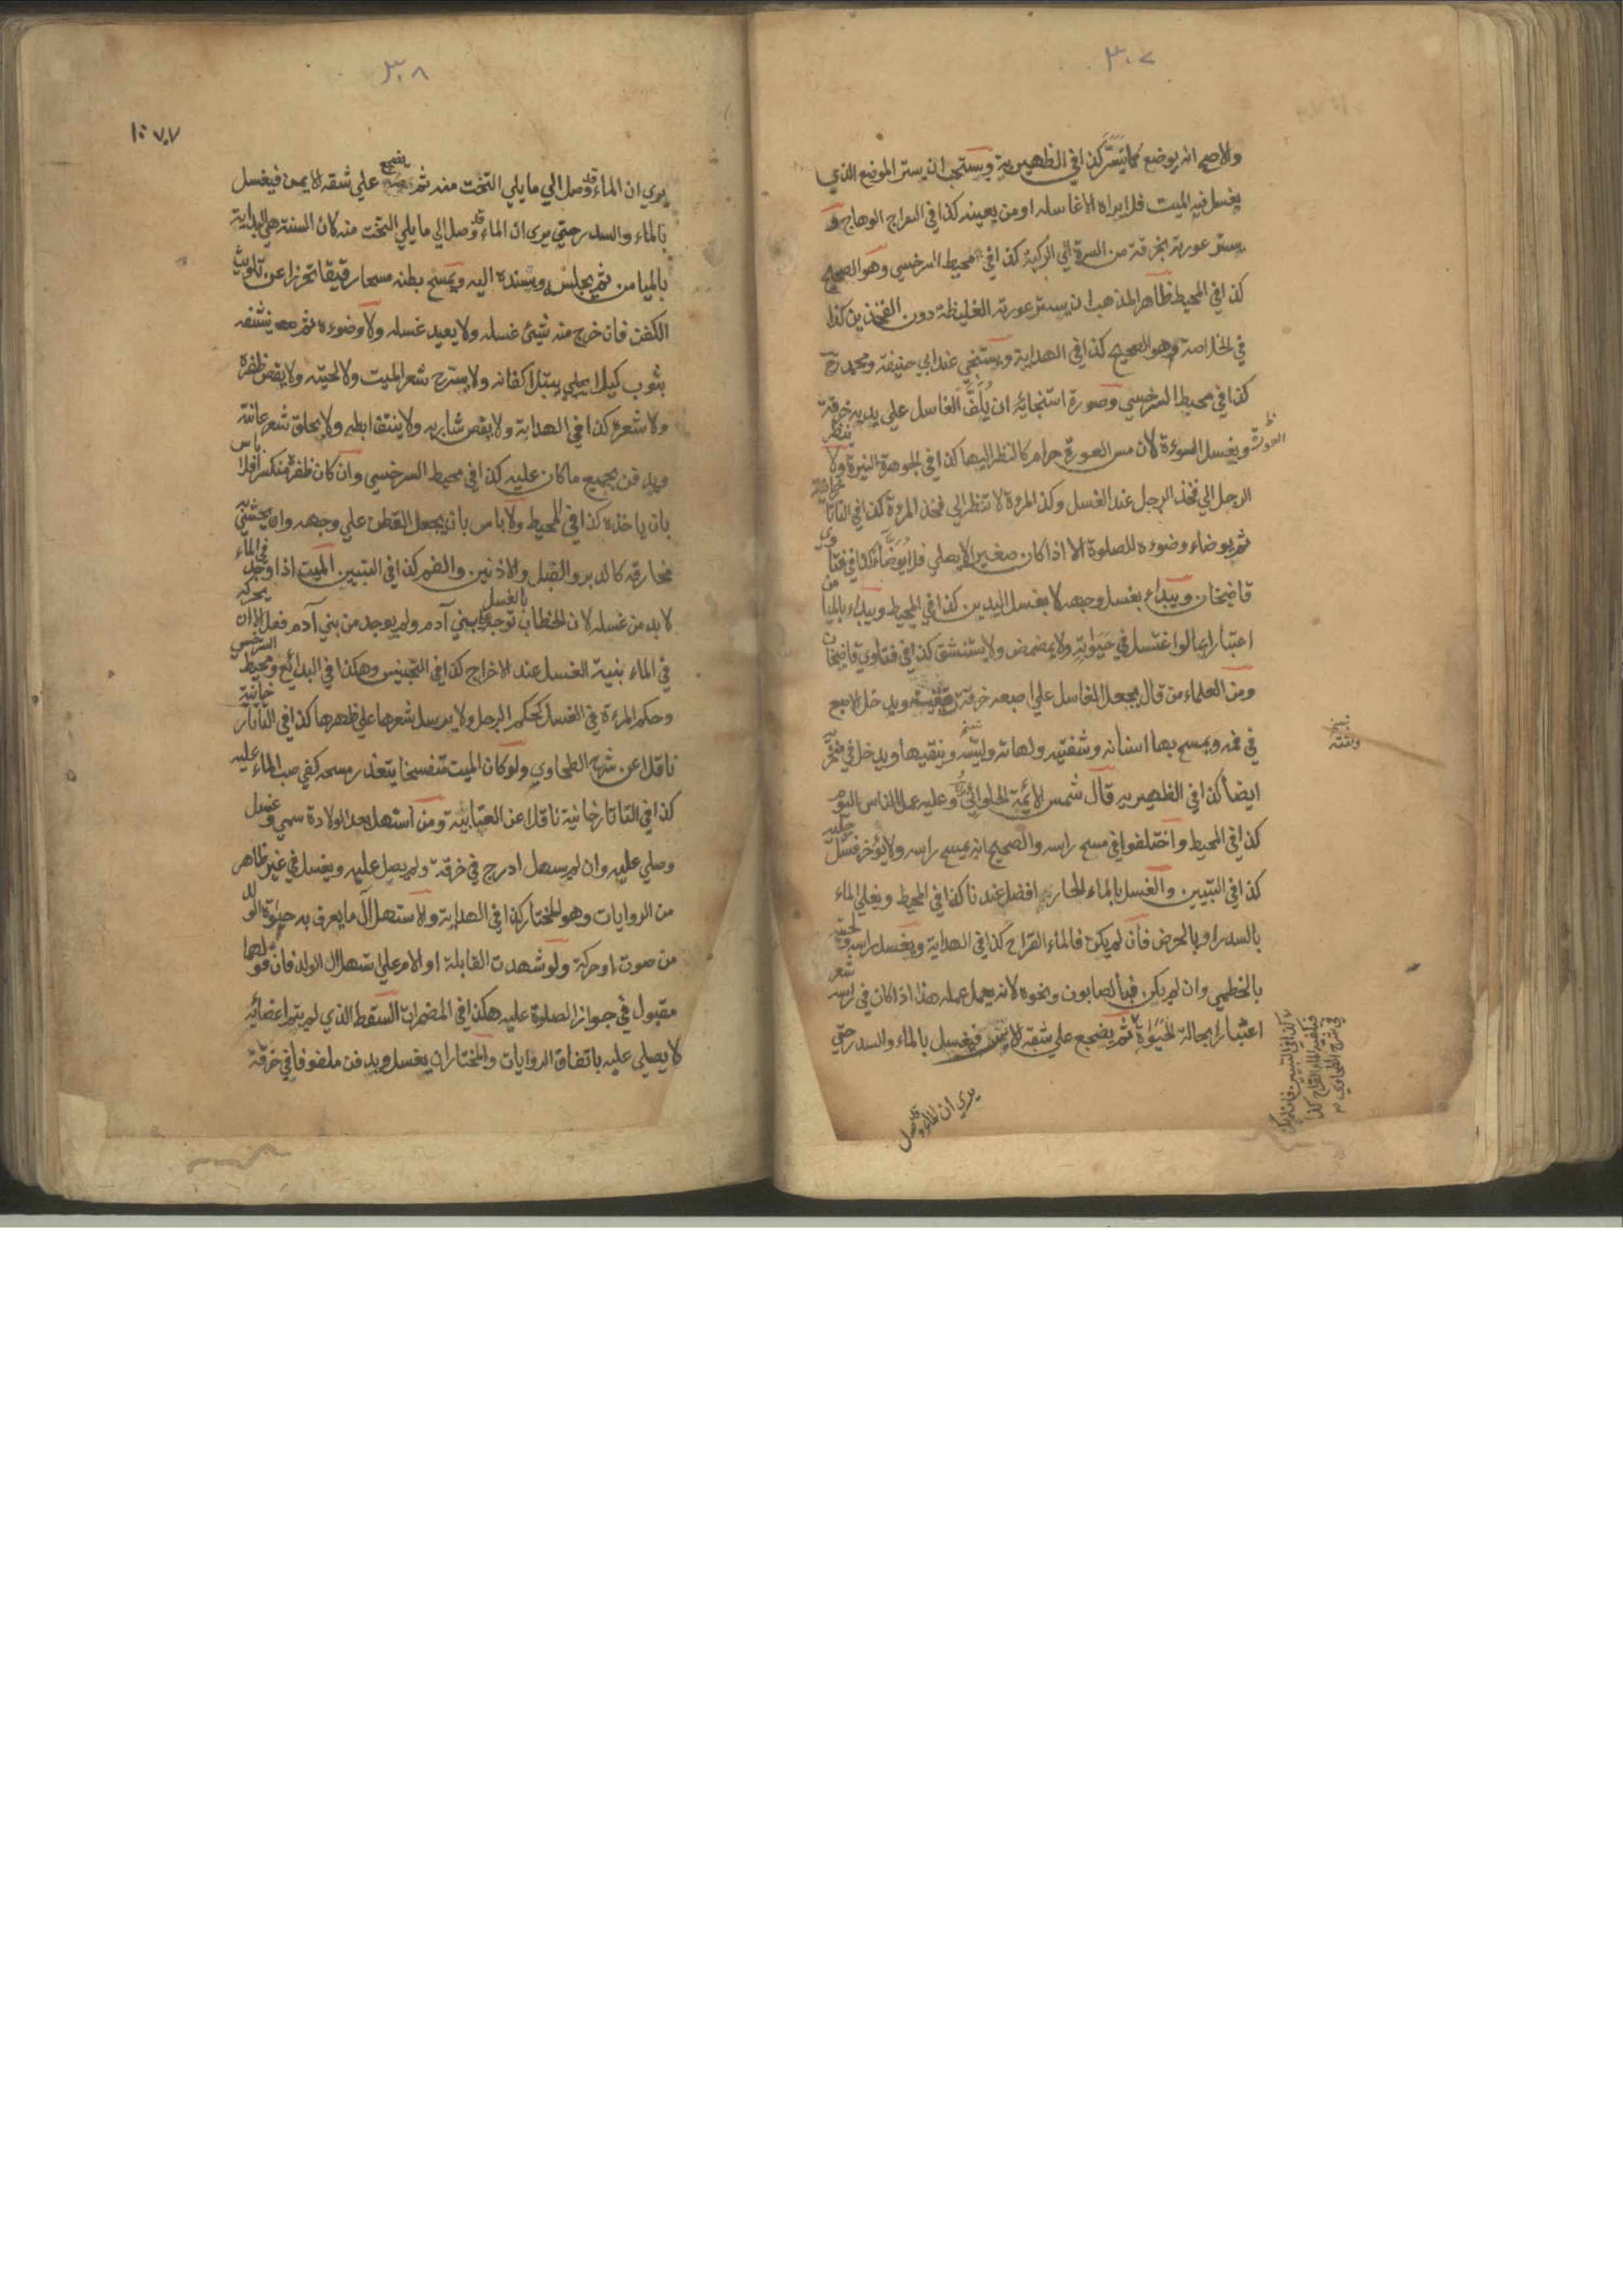 ٣٠٧
والاصح انه يوضع كما تيسر كذا في الظهيرية ويستحب ان يستر الموضع الذي
يغسل فيه الميت فلا يراه الا غاسله او من يعينه كذا في السراج الوهاج و
يستر عورته بخرقة من السرة الي الركبة كذا في محيط السرخسي وهو الصحيح
كذا في المحيط ظاهر المذهب ان يستر عورته الغليظة دون الفخذين كذا
في الخلاصة وهو الصحيح كذا في الهداية ويستنجي عند ابي حنيفة ومحمد رح
كذا في محيط السرخسي وصورة استنجائه ان يلف الغاسل علي يديه خرقة
ويغسل السوءة لان مس العورة حرام كالنظر اليها كذا في الجوهرة النيرة ولا ينظر
الرجل الي فخذ الرجل عند الغسل وكذا المرءة لا تنظر الي فخذ المرءة كذا في التاتارخانية
ثم يوضاء وضوءه للصلوة الا اذا كان صغيرا لا يصلي فلا يوضأ كذا في فتاوي
قاضيخان ويبداء بغسل وجهه لا بغسل اليدين كذا في المحيط ويبداء بالميامن
اعتبارا بما لو اغتسل في حيوته ولا يمضمض ولا يستنشق كذا في فتاوي قاضيخان
ومن العلماء من قال يجعل الغاسل علي اصبعه خرقة رقيقة ويدخل الاصبع
في فمه ويمسح بها اسنانه وشفتيه ولهاته ولثته وينقيها ويدخل في منخريه
ايضا كذا في الظهيرية قال شمس الائمة الحلوائي وعليه عمل الناس اليوم
كذا في المحيط واختلفوا في مسح راسه والصحيح انه يمسح راسه ولا يؤخر غسل رجليه
كذا في التبيين والغسل بالماء الحار افضل عندنا كذا في المحيط ويغلي الماء
بالسدر او بالحرض فان لم يكن فالماء القراح كذا في الهداية ويغسل راسه ولحيته
بالخطمي وان لم يكن فبالصابون ونحوه لانه يعمل عمله هذا اذا كان في راسه شعر
اعتبارا بحالة الحيوة ثم يضجع علي شقه الايسر فيغسل بالماء والسدر حتي
يري ان الماء قد وصل
العورة
نسخ
ولثته
كذا في التبيين فان لم يكن
فيكفيه الماء القراح كذا
في شرح الطحاوي
٣٠٨
يري ان الماء قد وصل الي ما يلي التخت منه ثم يضجع علي شقه الايمن فيغسل
بالماء والسدر حتي يري ان الماء قد وصل الي ما يلي التخت منه كان السنة هي البداية
بالميامن ثم يجلس ويسنده اليه ويمسح بطنه مسحا رقيقا تحرزا عن تلويث
الكفن فان خرج منه شيئ غسله ولا يعيد غسله ولا وضوءه ثم ينشفه
بثوب كيلا يبتل اكفانه ولا يسرح شعر الميت ولا لحيته ولا يقص ظفره
ولا شعره كذا في الهداية ولا يقص شاربه ولا ينتف ابطه ولا يحلق شعر عانته
ويدفن بجميع ما كان عليه كذا في محيط السرخسي وان كان ظفره منكسرا فلا باس
بان ياخذه كذا في المحيط ولا باس بان يجعل القطن علي وجهه وان يحشي به
مخارقه كالدبر والقبل والاذنين والفم كذا في التبيين الميت اذا وجد في الماء
لا بد من غسله لان الخطاب بالغسل توجه علي بني آدم ولم يوجد من بني آدم فعل الا ان يحركه
في الماء بنية الغسل عند الاخراج كذا في التجنيس وهكذا في البدائع ومحيط السرخسي
وحكم المرءة في الغسل كحكم الرجل ولا يرسل شعرها علي ظهرها كذا في التاتارخانية
ناقلا عن شرح الطحاوي ولو كان الميت متفسخا يتعذر مسحه كفي صب الماء عليه
كذا في التاتارخانية ناقلا عن العتابية ومن استهل بعد الولادة سمي وغسل
وصلي عليه وان لم يستهل ادرج في خرقة ولم يصل عليه ويغسل في غير ظاهر
من الروايات وهو المختار كذا في الهداية والاستهلال ما يعرف به حيوة الولد
من صوت او حركة ولو شهدت القابلة او الام علي استهلال الولد فان قولهما
مقبول في جواز الصلوة عليه هكذا في المضمرات السقط الذي لم يتم اعضائه
لا يصلي عليه باتفاق الروايات والمختار ان يغسل ويدفن ملفوفا في خرقة